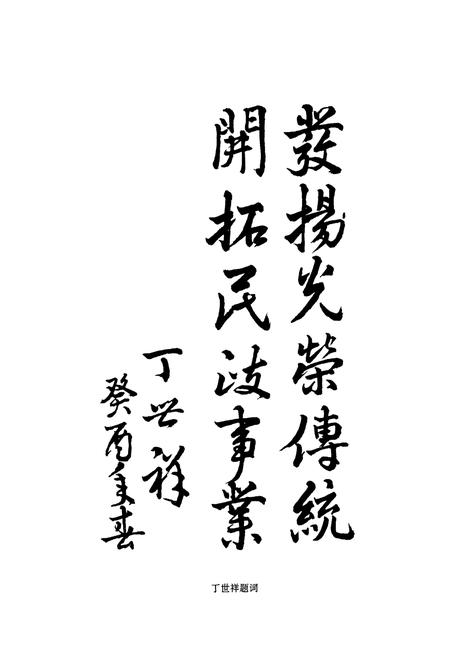 發揚光榮傳統
開拓民政事業
丁世祥
癸酉年春
丁世祥题词